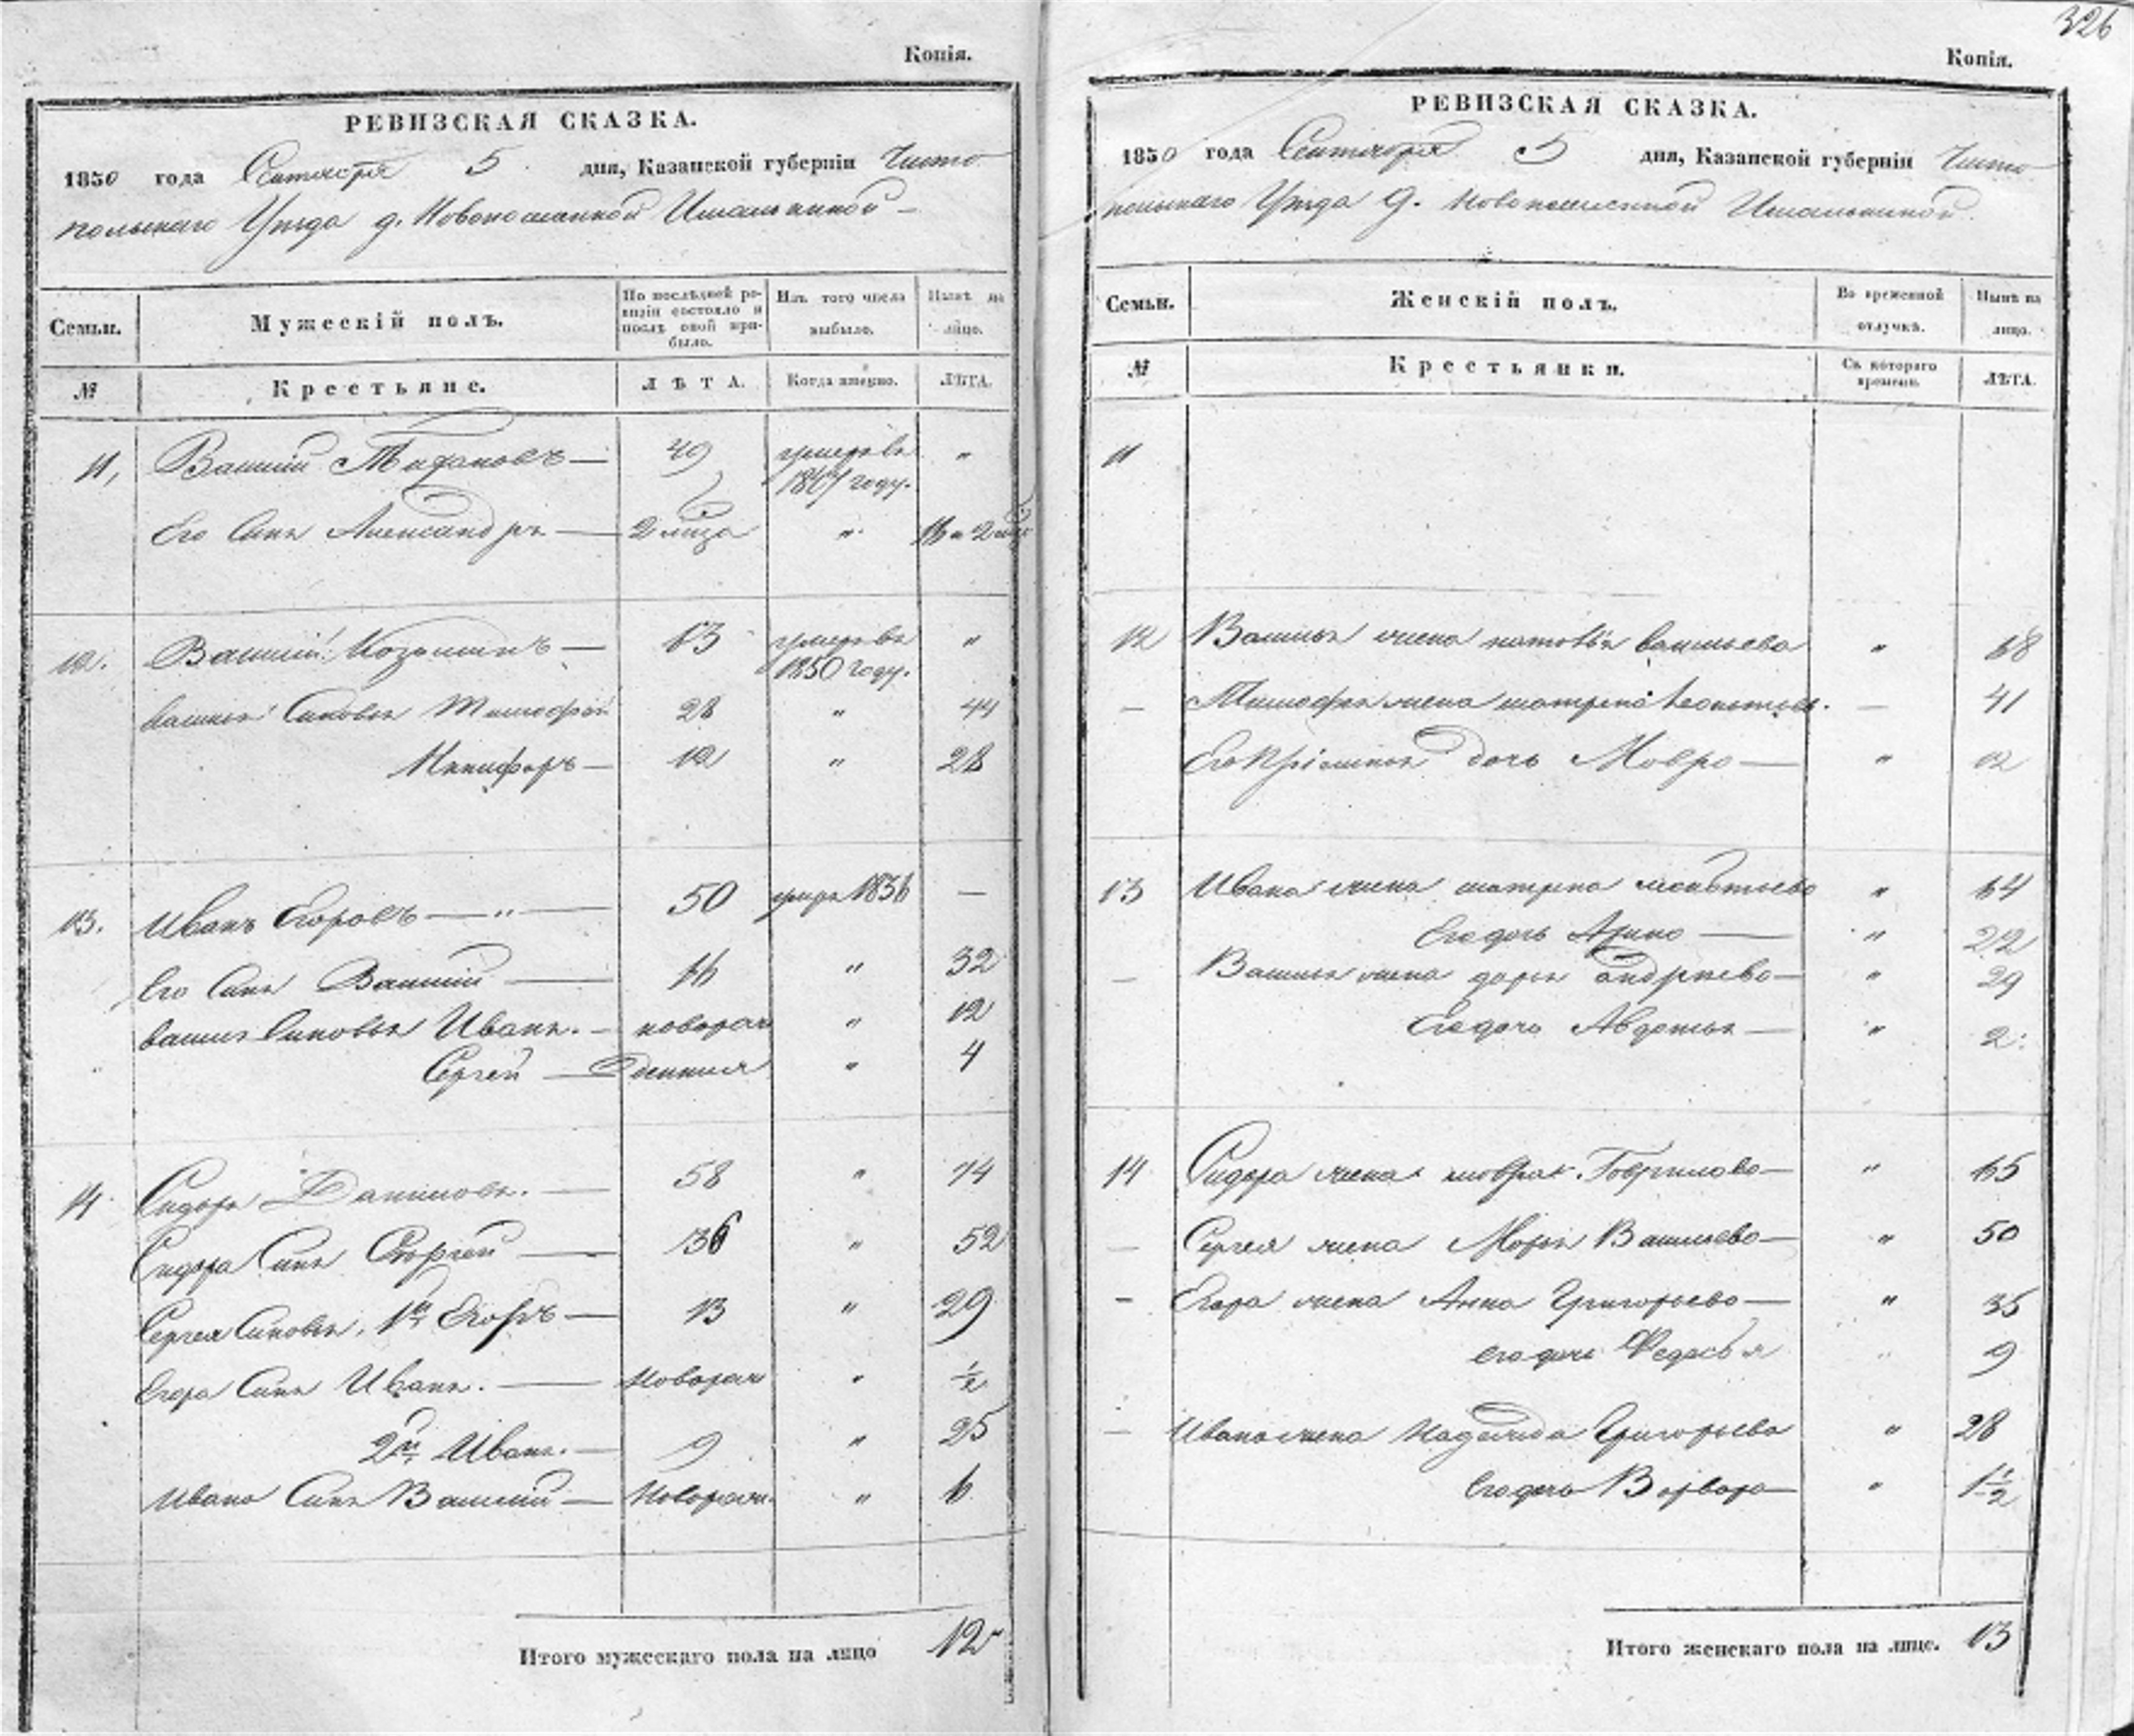 326
Копія.
РЕВИЗСКАЯ СКАЗКА.
1850 года Сентября 5 дня, Казанской губерніи Чисто
польскаго Уезда д. Ново
Семьи. Мужескій полъ. По послѣдней ревизіи состояло и послѣ оной прибыло. Изъ того числа выбыло. Нынѣ на лицо.
№ Крестьяне. ЛѢТА. Когда именно. ЛѢТА.
11, Василій 49 умеръ въ "
году.
Его Сынъ Александръ — 2 мѣсца " 16 и 2 мѣс
12. Василій — 13 умеръ въ "
1850 году.
Васильи Сыновья Тимофей 28 " 44
Никифоръ — 12 " 28
13. Иванъ Егоровъ — " — 50 умеръ 1836 —
Его Сынъ Василій — 16 " 32
Васил Сыновья Иванъ. — новорож " 12
Сергей — денныя " 4
14. Сидоръ Даниловъ. — 58 " 74
Сидора Сынъ Сергей — 36 " 52
Сергея Сыновья, 1й Егоръ — 13 " 29
Егора Сынъ Иванъ. — Новорож " ½
2й Иванъ. — 9 " 25
Ивана Сынъ Василій — Новорож. " 6
Итого мужескаго пола на лицо 12
Копія.
РЕВИЗСКАЯ СКАЗКА.
1850 года Сентября 5 дня, Казанской губерніи Чисто
польскаго Уезда д. Ново
Семьи. Женскій полъ. Во временной отлучкѣ. Нынѣ на лицо.
№ Крестьянки. Съ котораго времени. ЛѢТА.
11
12 Василья жена Васильева " 68
— Тимофея жена матрена — 41
Его дочь Мавра — " 12
13 Ивана жена матрена " 64
Его дочь Арина — " 22
— Василья жена дарья андреева — " 29
Его дочь Авдотья — " 2
14 Сидора жена мавра Гаврилова — " 65
— Сергея жена Марья Васильева — " 50
— Егора жена Анна Григорьева — " 35
его дочь Федосья " 9
— Ивана жена Надежда Григорьева " 28
Его дочь Варвара — " 1½
Итого женскаго пола на лице. 13